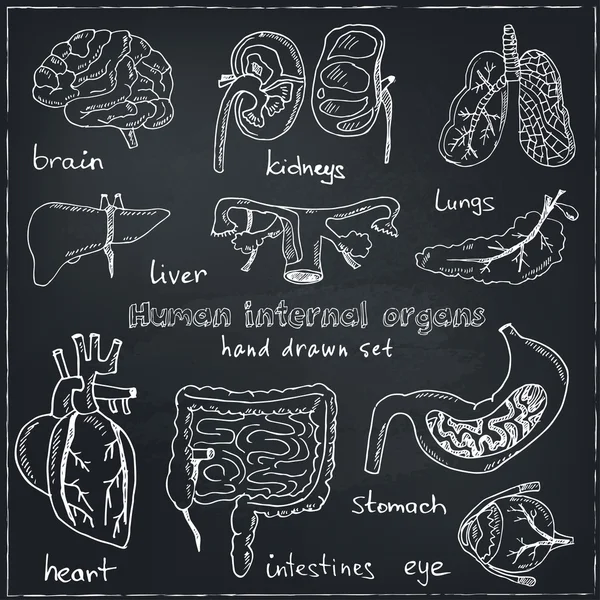 brain
kidneys
Lungs
liver
Human internal organs
hand drawn set
stomach
heart
intestines
eye